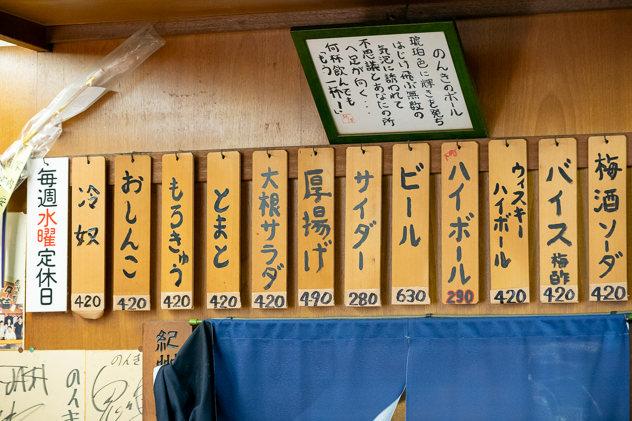 のんきのボール
琥珀色に輝きを発ち
はじけ飛ぶ無数の
気泡に誘われて
不思議とあなたの所
へ足が向く・・・
何杯飲んでも
「もう一杯!」
梅酒ソーダ
420
バイス梅酢
420
ウィスキーハイボール
420
ハイボール
290
ビール
630
サイダー
280
厚揚げ
490
大根サラダ
420
とまと
420
もろきゅう
420
おしんこ
420
冷奴
420
毎週水曜定休日
のんき
のんき